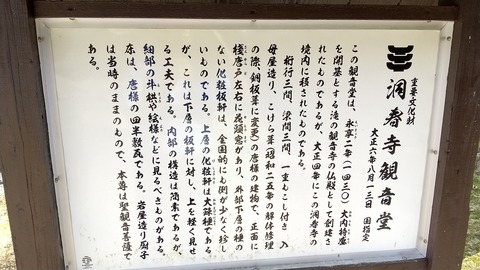 重要文化財
洞春寺観音堂
大正六年八月一三日 国指定
この観音堂は、永享二年(一四三〇)大内持盛
を開基とする滝の観音寺の仏殿として創建さ
れたものであるが、大正四年にこの洞春寺の
境内に移されたものである。
桁行三間、梁間三間、一重もこし付き 入
母屋造り、こけら葺(昭和二五年の解体修理
の際、銅板葺に変更)の唐様の建物で、正面に
桟唐戸左右に花頭窓があり、外部下層の種の
ない化粧板軒は、全国的にも例が少なく珍し
いものである。上層の化粧軒は大疎種である
が、これは下層の板軒に対し、上を軽く見せ
る工夫である。内部の構造は簡素であるが、
細部の斗栱や絵様などに見るべきものがある。
床は、唐様の四半敷瓦である。岩屋造り厨子
は当時のままのもので、本尊は聖観音菩薩で
ある。